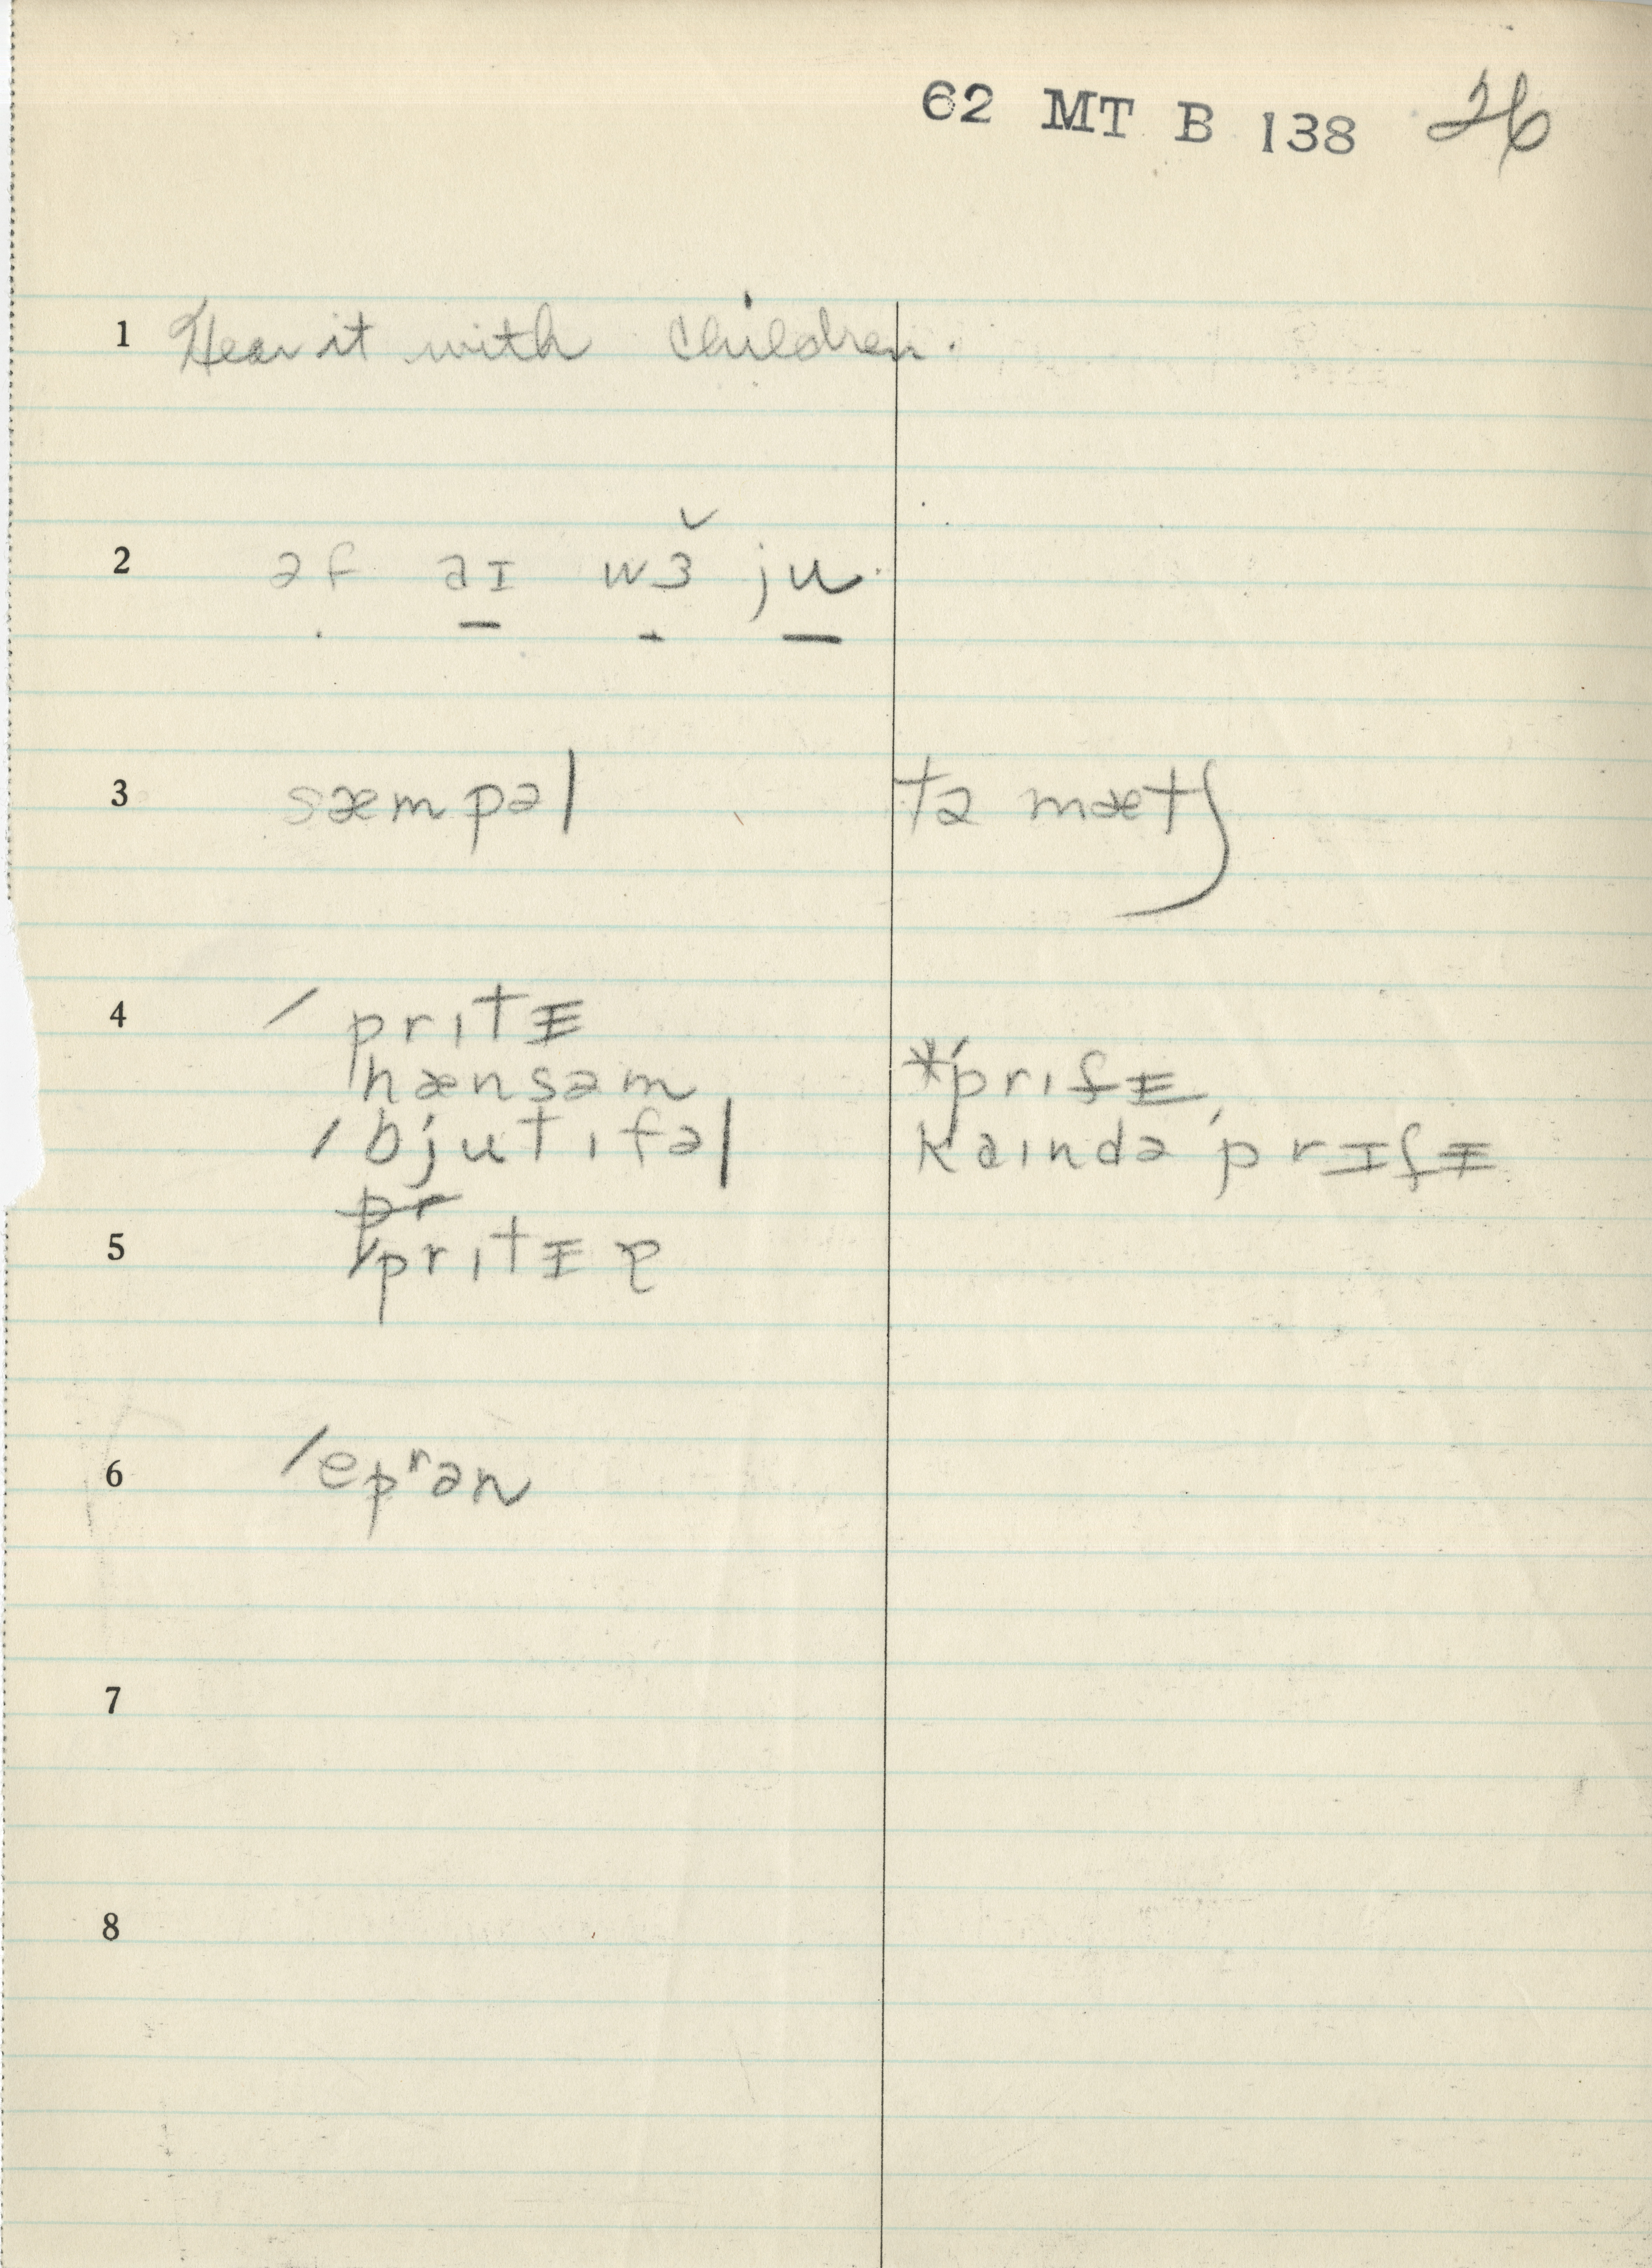 62 MT B 138 26
1 Hear it with children.
2 əf aɪ wɜ̌ ju.
3 sæmpəl tə mætʃ
4 ˈprɪtᵻ
hænsəm *ˈprɪfᵻ,
ˈbjutɪfəl kaɪndə ˈprɪfᵻ
pr
5 ˈprɪtᵻɚ
6 ˈepʳən
7
8